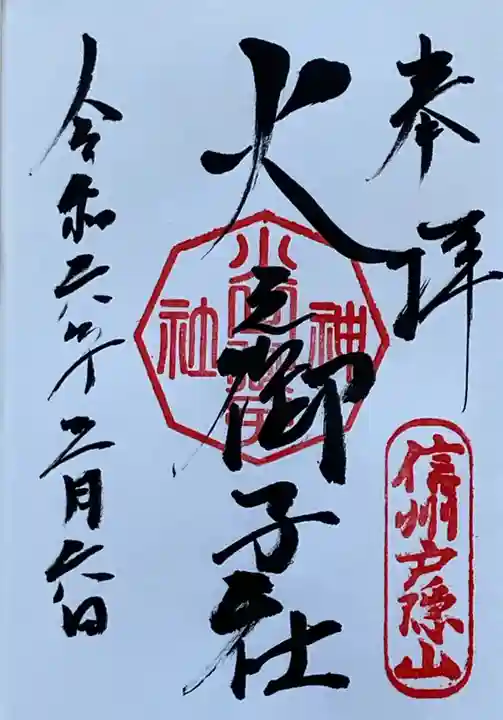 奉拝
信州戸隠山
火之御子社
神社
令和六年三月六日